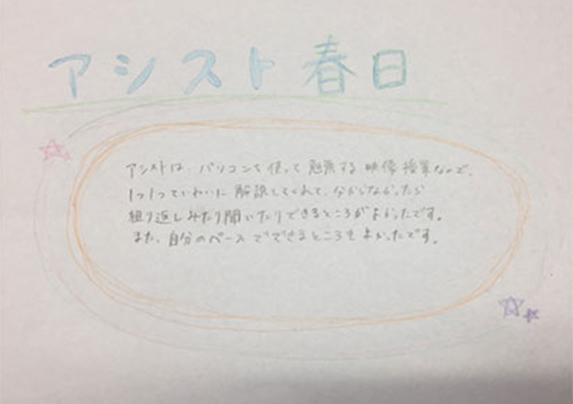 アシスト春日
アシストは、パソコンを使って勉強する映像授業なので、
1つ1つていねいに解説してくれて、分からなかったら
繰り返しみたり聞いたりできるところがよかったです。
また、自分のペースでできるところもよかったです。